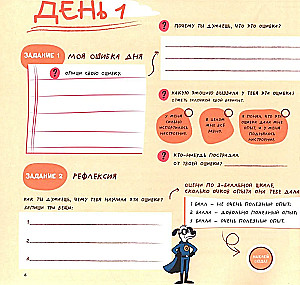 ДЕНЬ 1
ЗАДАНИЕ 1
МОЯ ОШИБКА ДНЯ
? ОПИШИ СВОЮ ОШИБКУ.
? ПОЧЕМУ ТЫ ДУМАЕШЬ, ЧТО ЭТО ОШИБКА?
? КАКУЮ ЭМОЦИЮ ВЫЗВАЛА У ТЕБЯ ЭТА ОШИБКА?
ОТМЕТЬ ГАЛОЧКОЙ СВОЙ ВАРИАНТ.
У МЕНЯ
СИЛЬНО
ИСПОРТИЛОСЬ
НАСТРОЕНИЕ.
В ЦЕЛОМ
МНЕ ВСЁ
РАВНО.
Я ПОНЯЛ, ЧТО ЭТА
ОШИБКА ДАЛА МНЕ
ОПЫТ, И У МЕНЯ
ПОДНЯЛОСЬ
НАСТРОЕНИЕ.
? КТО-НИБУДЬ ПОСТРАДАЛ
ОТ ТВОЕЙ ОШИБКИ?
ЗАДАНИЕ 2
РЕФЛЕКСИЯ
КАК ТЫ ДУМАЕШЬ, ЧЕМУ ТЕБЯ НАУЧИЛА ЭТА ОШИБКА?
ЗАПИШИ ТРИ ВЕЩИ:
1
2
3
ОЦЕНИ ПО 3-БАЛЛЬНОЙ ШКАЛЕ,
СКОЛЬКО ОПЫТА ОНА ТЕБЕ ДАЛА.
1 БАЛЛ - НЕ ОЧЕНЬ ПОЛЕЗНЫЙ ОПЫТ.
2 БАЛЛА - ДОВОЛЬНО ПОЛЕЗНЫЙ ОПЫТ.
3 БАЛЛА - ОЧЕНЬ ПОЛЕЗНЫЙ ОПЫТ.